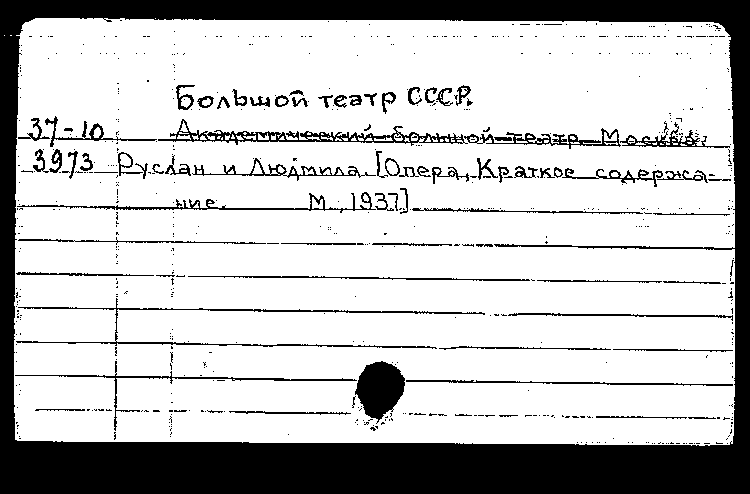 Большой театр СССР.
37-10 Академический большой театр. Москва.
3973 Руслан и Людмила. [Опера, Краткое содержа-
ние. М., 1937]